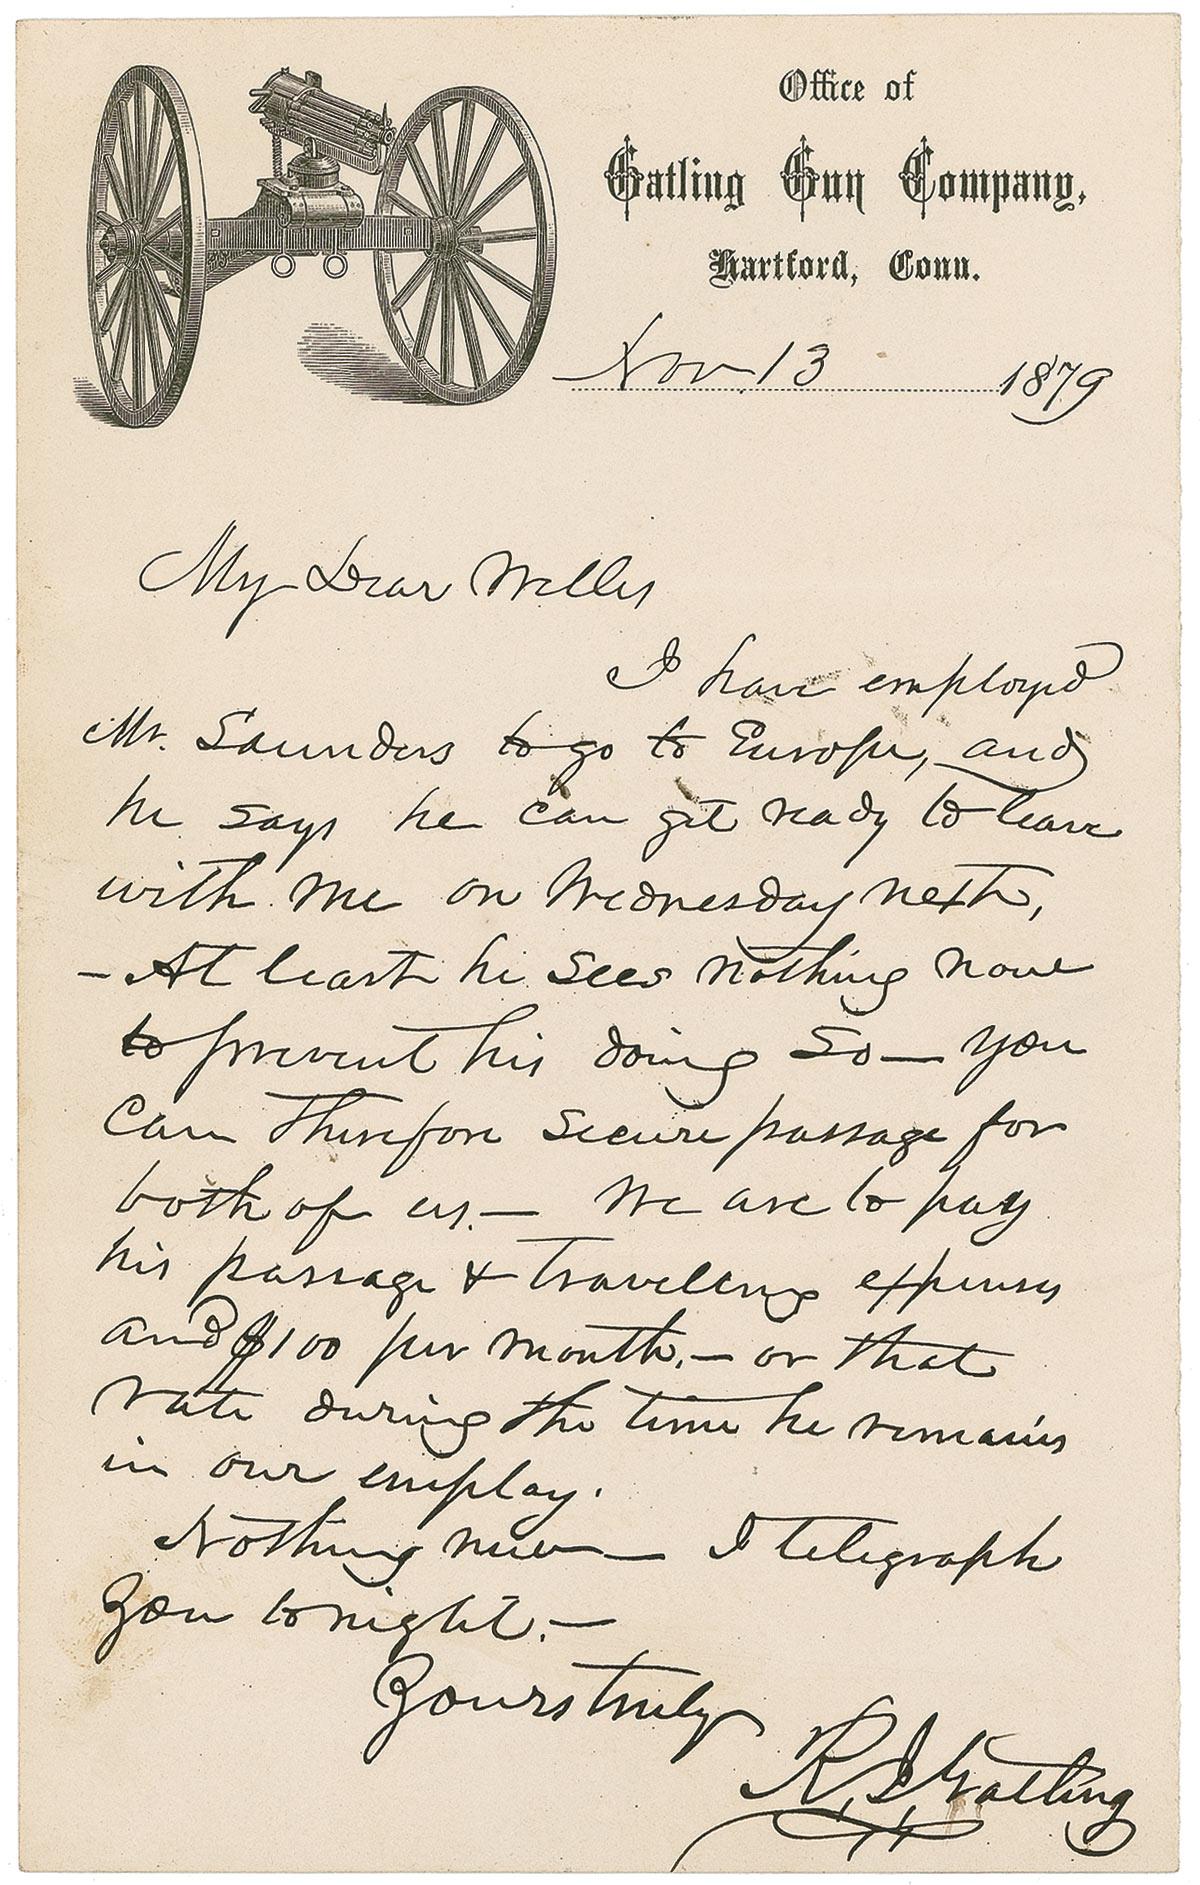 Office of
Gatling Gun Company,
Hartford, Conn.
Nov. 13 1879
My Dear Welles
I have employed
Mr. Saunders to go to Europe, and
he says he can get ready to leave
with me on Wednesday next,
- At least he sees nothing now
to prevent his doing so — you
can therefore secure passage for
both of us. — We are to pay
his passage & traveling expenses
and $100 per month, — or that
rate during the time he remains
in our employ.
Nothing new — I telegraph
you tonight. —
Yours truly
R. J. Gatling